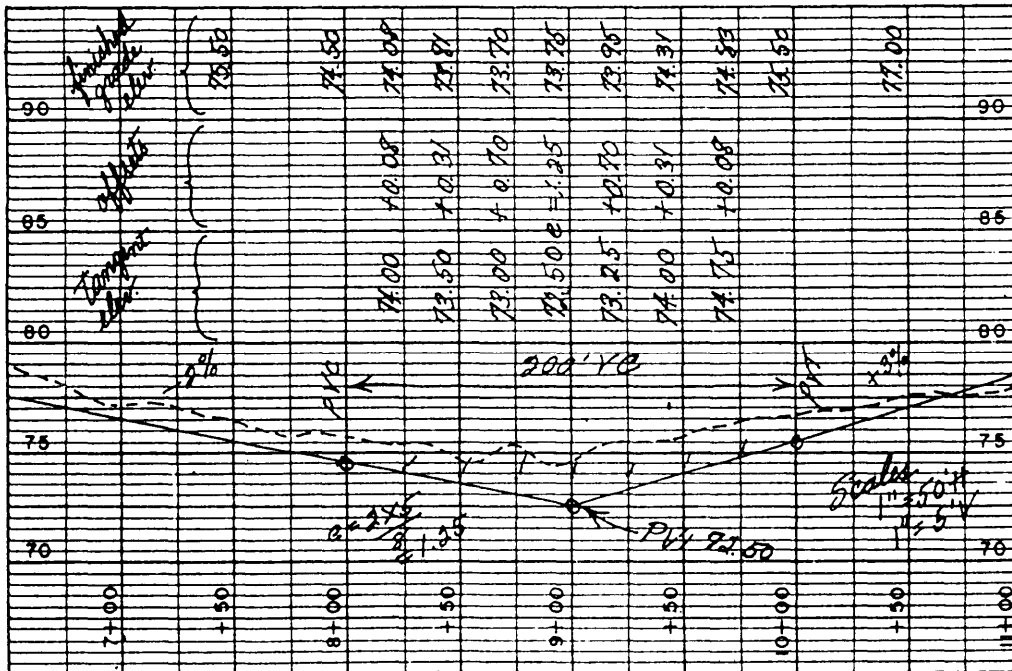 finished grade elev.
75.50 74.50 74.08 73.81 73.70 73.75 73.95 74.31 74.83 75.50 77.00
90 90
offsets
+0.08 +0.31 +0.70 e=1.25 +0.70 +0.31 +0.08
85 85
Tangent elev.
74.00 73.50 73.00 72.50 73.25 74.00 74.75
80 80
-2% PVC 200' VC PVT +3%
75 75
e = 2×5
8
= 1.25
PVI 72.50
Scales
1" = 50' H
1" = 5' V
70 70
7+00 +50 8+00 +50 9+00 +50 10+00 +50 11+00